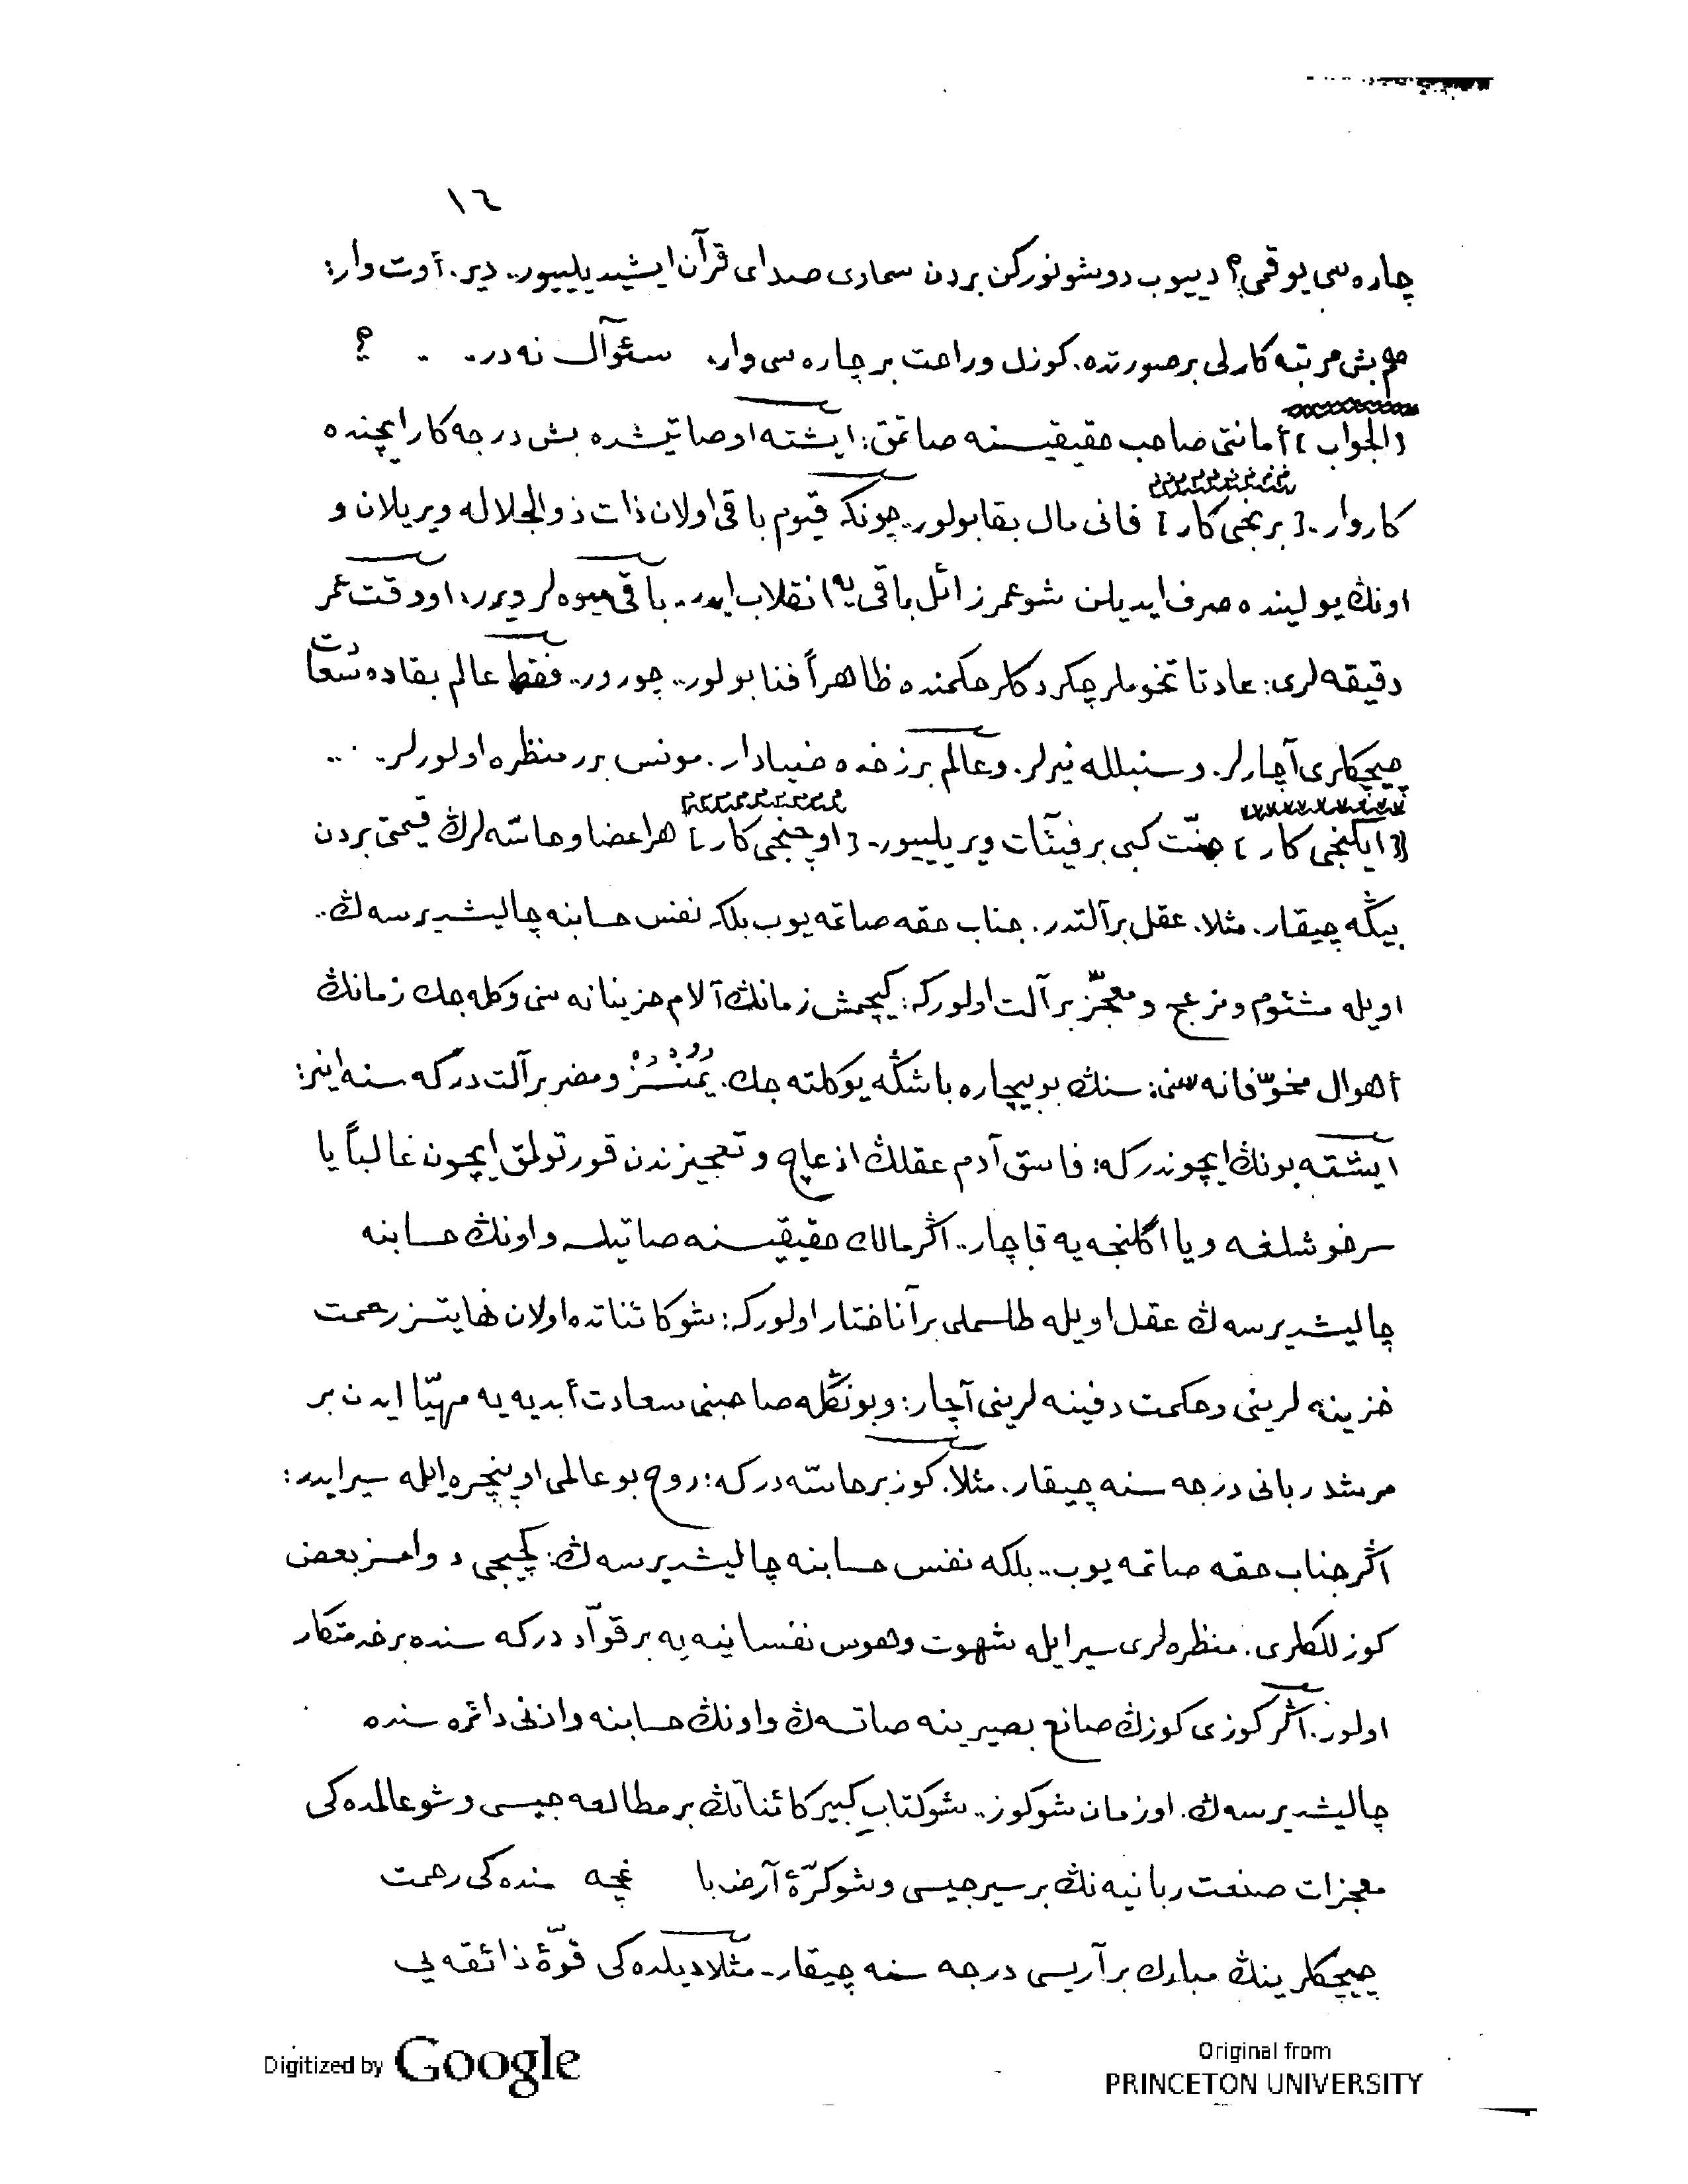 ١٦
چاره سی یوقمی؟ دییوب دوشونورکن بردن سماوی صدای قرآن ایشیدیلییور.. دیر. أوت وار:
هم بش مرتبه کارلی بر صورتده. کوزل وراحت بر چاره سی وار. سئوآل نه در. .. ؟
[الجواب] أمانتی صاحب حقیقیسنه صاتمق: ایشته او صاتیشده بش درجه کار ایچنده
کار وار. [برنجی کار] فانی مال بقا بولور.. چونکه قیوم باقی اولان ذات ذوالجلاله ویریلان و
اونڭ یولینده صرف ایدیلن شو عمر زائل باقی یه انقلاب ایدر. باقی میوه لر ویرر: او وقت عمر
دقیقه لری: عادتا تخوملر چکردکلر حکمنده ظاهراً فنا بولور.. چورور.. فقط عالم بقاده سعادت
چیچکلری آچارلر. و سنبللنیرلر. و عالم برزخده ضیادار. مونس برر منظره اولورلر. ..
[ایکنجی کار] جنّت کبی بر فیئآت ویریلییور. [اوچنجی کار] هر اعضا و حاسّه لرڭ قیمتی بردن
بیڭه چیقار. مثلا. عقل بر آلتدر. جناب حقه صاتمه یوب بلکه نفس حسابنه چالیشدیرسه ڭ..
اویله مشئوم و مزعج و معجّز بر آلت اولورکه: کیچمش زمانڭ آلام حزینانه سنی و کله جك زمانڭ
أهوال مخوّفانه سنی: سنڭ بو بیچاره باشڭه یوکلته جك. یُمنسُز و مضر بر آلت درکه سنه اینر:
ایشته بونڭ ایچوندرکه: فاسق آدم عقلڭ ازعاج و تعجیزندن قورتولمق ایچون غالباً یا
سرخوشلغه و یا اگلنجه یه قاچار.. اڭر مالك حقیقیسنه صاتیلسه و اونڭ حسابنه
چالیشدیرسه ڭ عقل اویله طلسملی بر آناختار اولورکه: شو کائناتده اولان نهایتسز رحمت
خزینه لرینی و حکمت دفینه لرینی آچار: و بونڭله صاحبنی سعادت أبدیه یه مهیّا ایدن بر
مرشد ربانی درجه سنه چیقار. مثلا. کوز بر حاسّه درکه: روح بو عالمی او پنچره ایله سیر ایدر:
اڭر جناب حقه صاتمه یوب.. بلکه نفس حسابنه چالیشدیرسه ڭ: کچیجی دوامسز بعض
کوزللکلری. منظره لری سیر ایله شهوت و هوس نفسانیه یه بر قوّاد درکه سنده بر خدمتکار
اولور. اڭر کوزی کوزڭ صانع بصیرینه صاتسه ڭ و اونڭ حسابنه و اذنی دائره سنده
چالیشدیرسه ڭ. او زمان شو کوز.. شو کتاب کبیر کائناتڭ بر مطالعه جیسی و شو عالمده کی
معجزات صنعت ربانیه نڭ بر سیرجیسی و شو کرّۀ آرض با غچه سنده کی رحمت
چیچکلرینڭ مبارك بر آریسی درجه سنه چیقار. مثلا دیلده کی قوّۀ ذائقه یی
Digitized by Google
Original from
PRINCETON UNIVERSITY